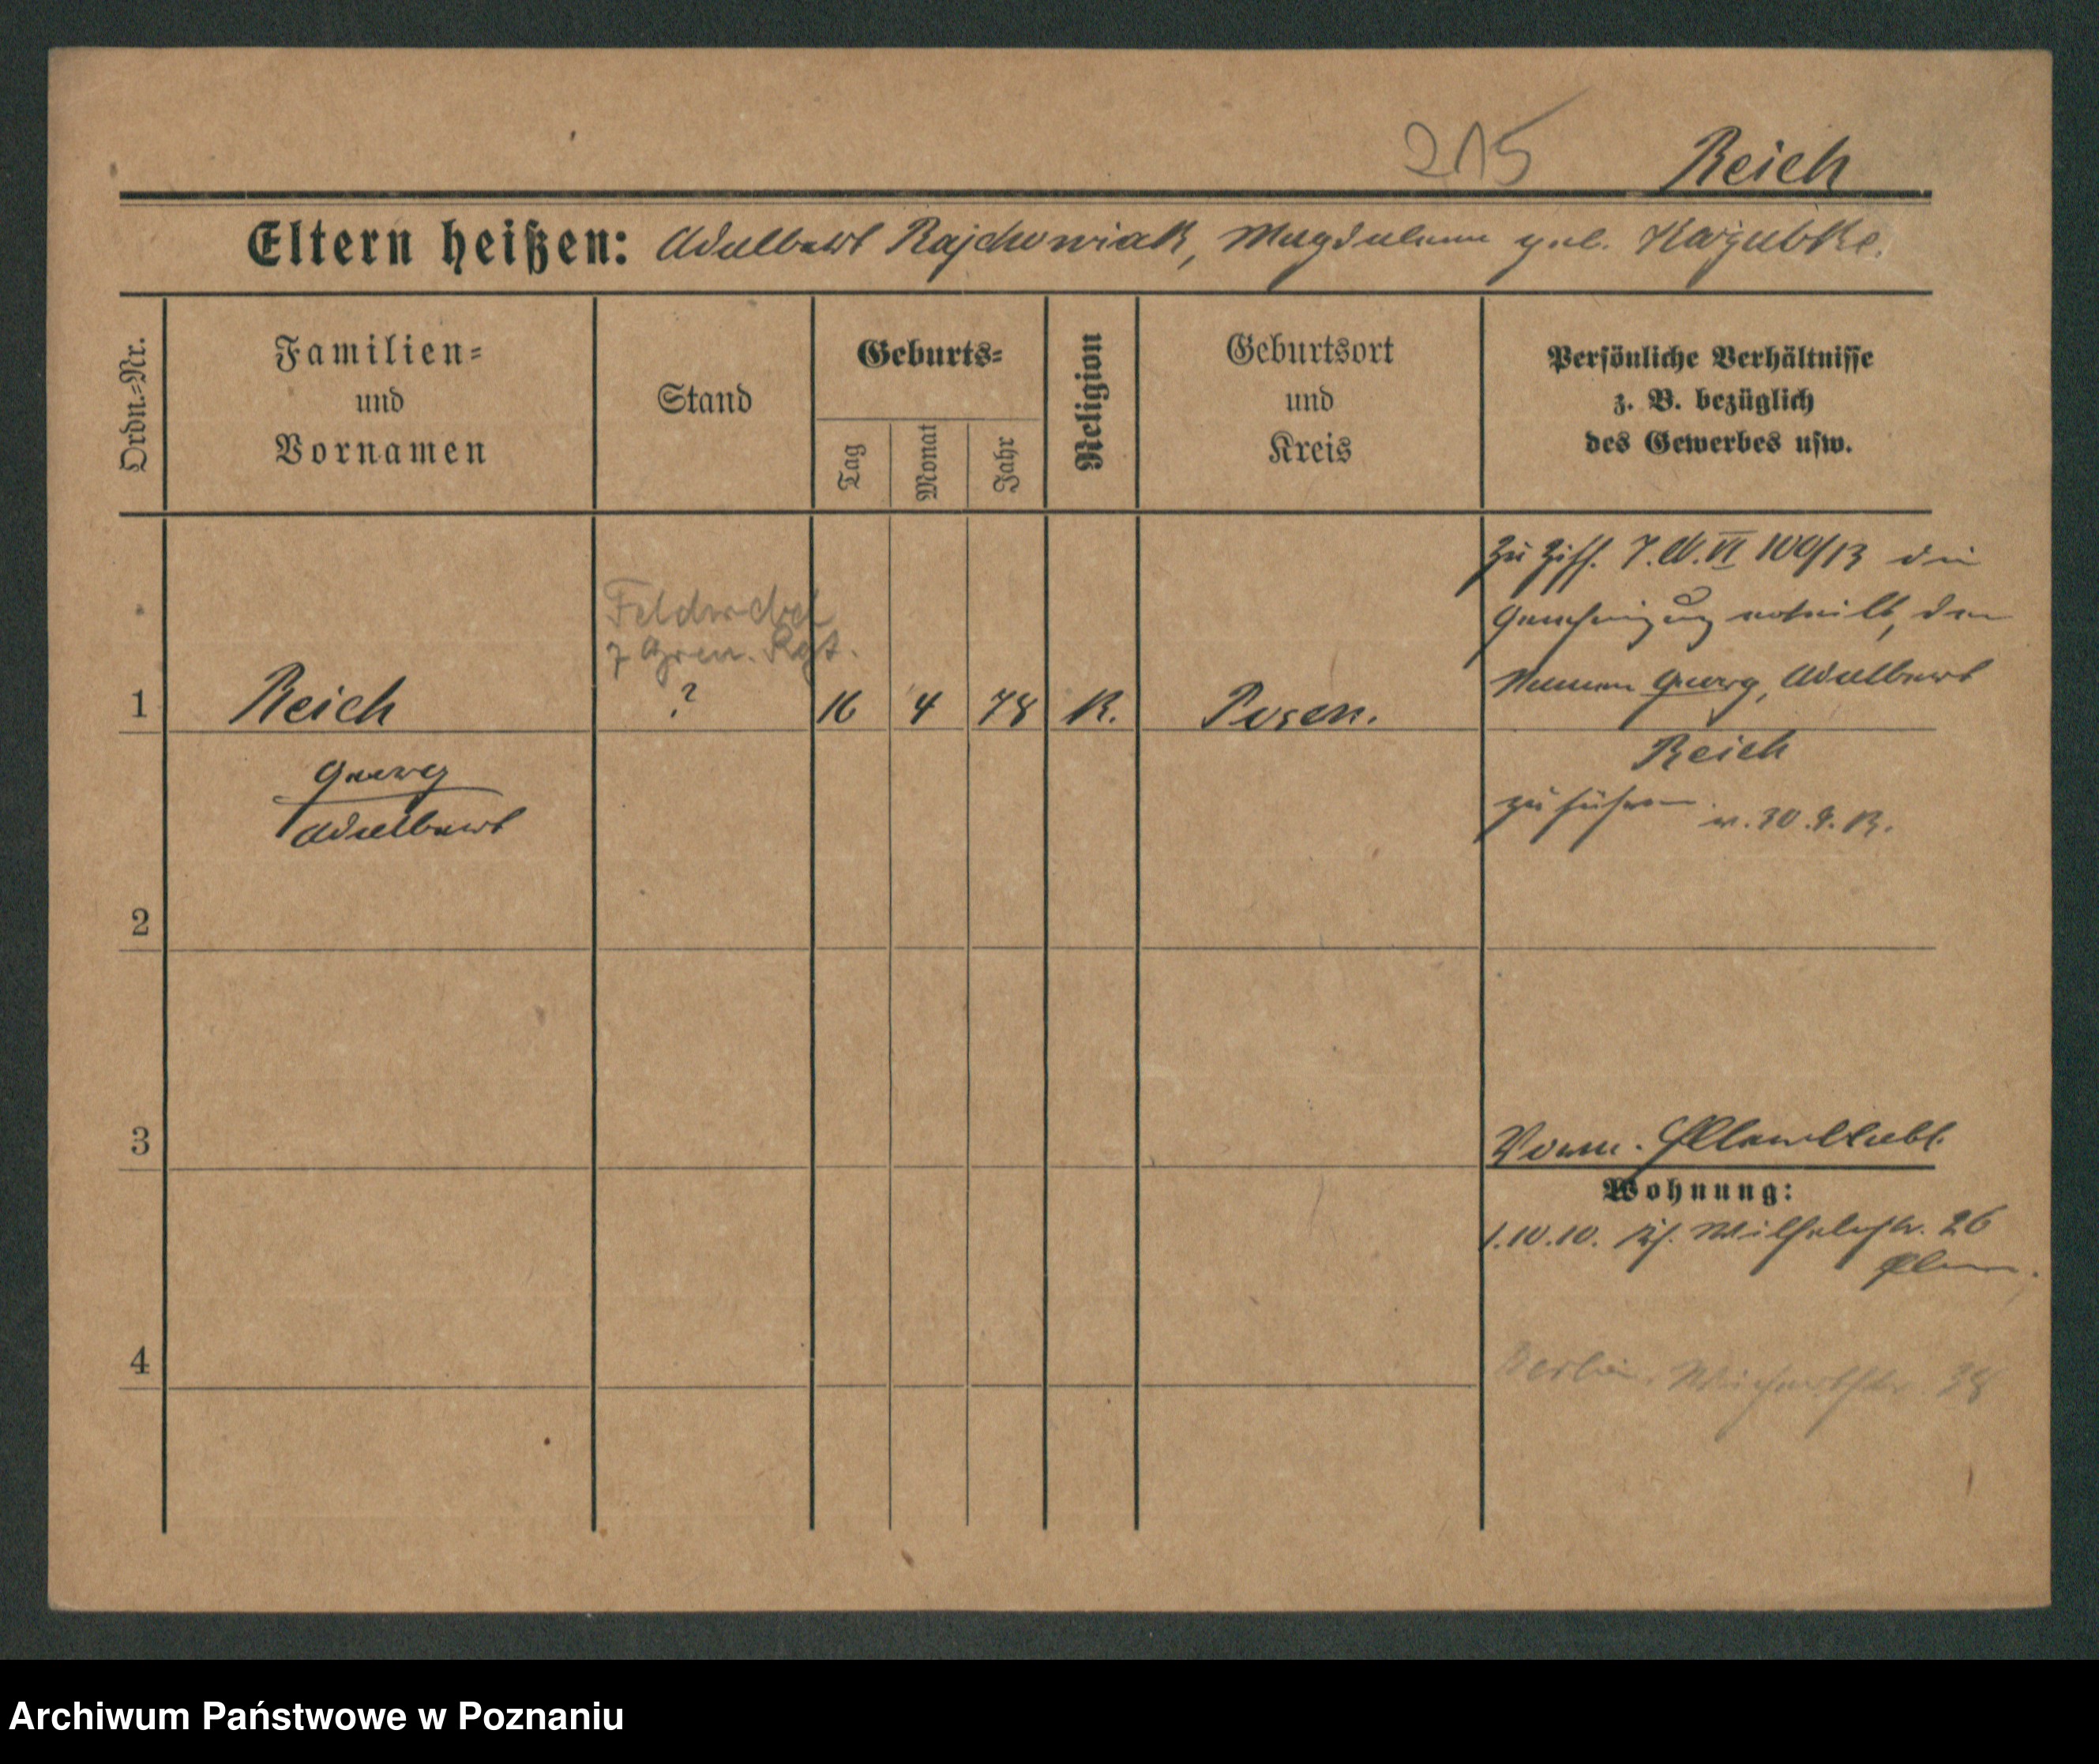 215 Reich
Eltern heißen: Adalbert Rajchowiak, Magdalena geb.
Ordn.=Nr.
Familien=
und
Vornamen
Stand
Geburts=
Tag
Monat
Jahr
Religion
Geburtsort
und
Kreis
Persönliche Verhältnisse
z. B. bezüglich
des Gewerbes usw.
Feldwebel
7 Gren. Rgt.
1 Reich ? 16 4 78 K. Posen.
Georg
Adalbert
Zu Ziff. 100/13 die
Genehmigung erteilt, den
Namen Georg, Adalbert
Reich
zu führen. 30.9.13.
2
3
Wohnung:
1.10.10. Wilhelmstr. 26
4
Berlin, 38
Archiwum Państwowe w Poznaniu